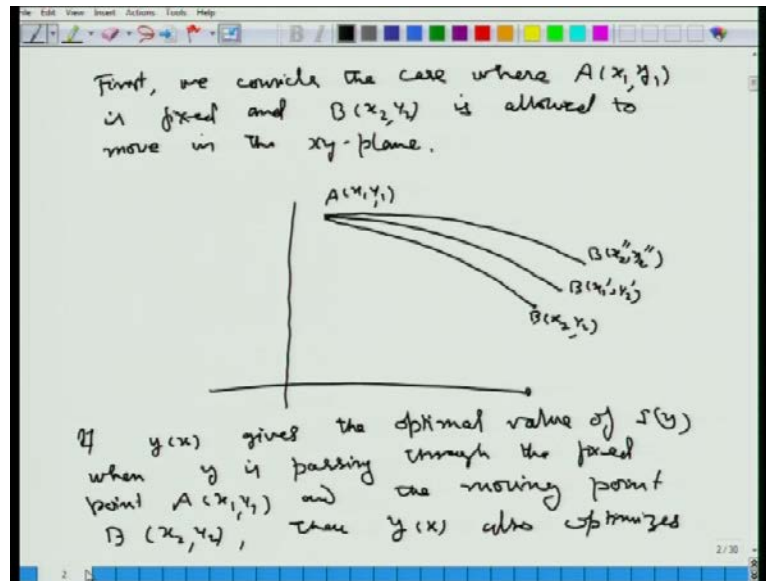 File Edit View Insert Actions Tools Help
First, we consider the case where A(x₁,y₁)
is fixed and B(x₂,y₂) is allowed to
move in the xy-plane.
A(x₁,y₁)
B(x₂'',y₂'')
B(x₂',y₂')
B(x₂,y₂)
If y(x) gives the optimal value of J(y)
when y is passing through the fixed
point A(x₁,y₁) and the moving point
B(x₂,y₂), then y(x) also optimizes
2/30
2